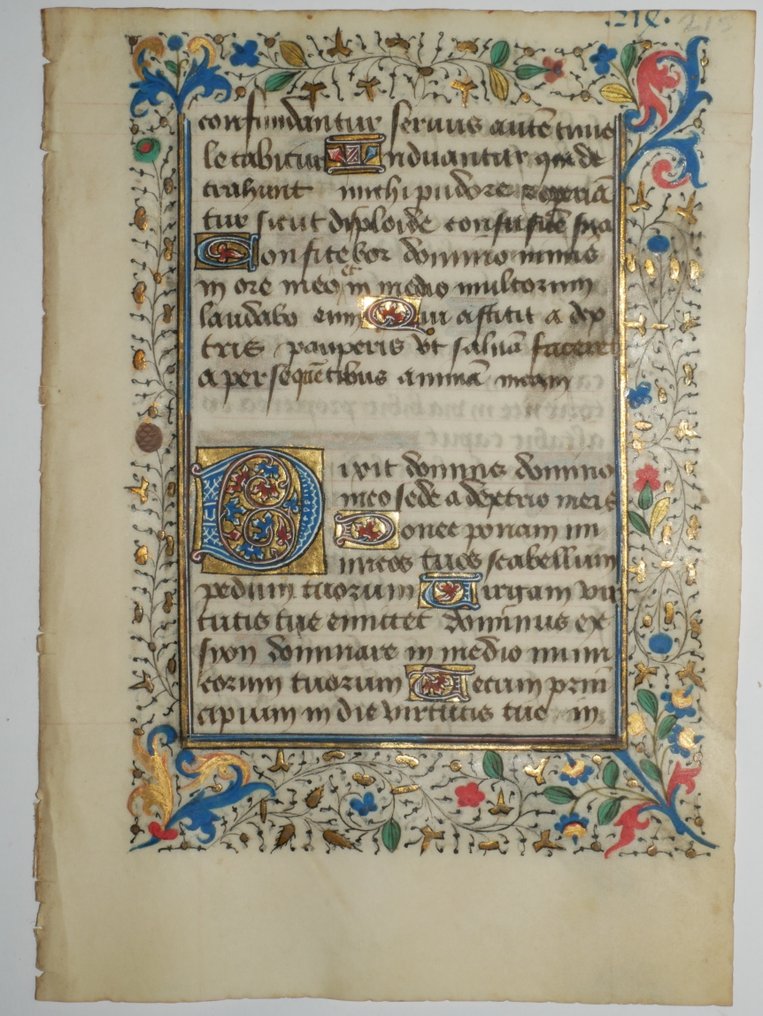 .218. 218
confundantur servus autē tuus
letabitur Induantur qui de
trahunt michi pudore
tur sicut diploide confusiōe sua
Confitebor domino nimis
in ore meo et in medio multorum
laudabo eum Qui astitit a dex
tris pauperis vt saluā faceret
a persequētibus animā meam
Dixit dominus domino
meo sede a dextris meis
Donec ponam ini
micos tuos scabellum
pedum tuorum Virgam vir
tutis tue emittet dominus ex
syon dominare in medio inimi
corum tuorum Tecum prin
cipium in die virtutis tue in